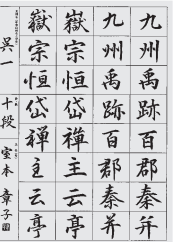 九州禹跡百郡秦并
九州禹跡百郡秦并
嶽宗恒岱禅主云亭
嶽宗恒岱禅主云亭
呉一 十段 室本章子